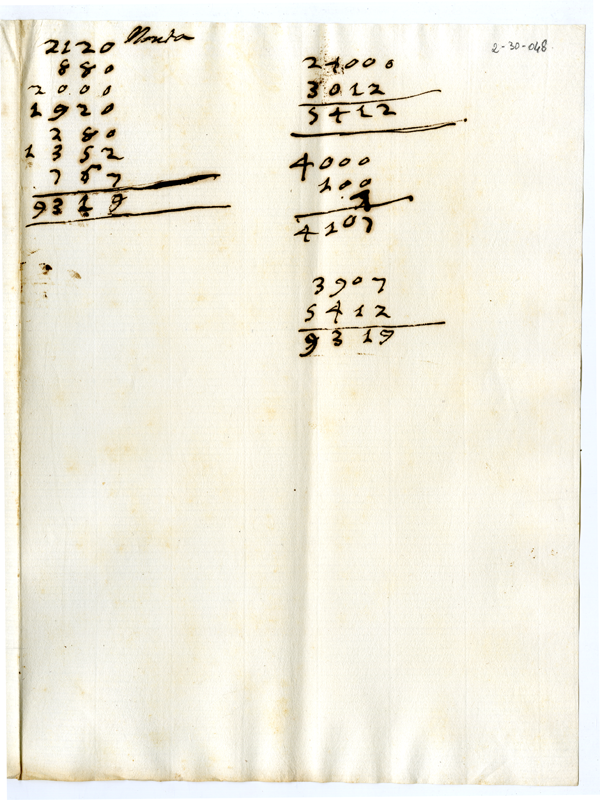 2120
880
2000
1920
280
1352
767
9319
2-30-048
24000
3012
5412
4000
100
7
4107
3907
5412
9319